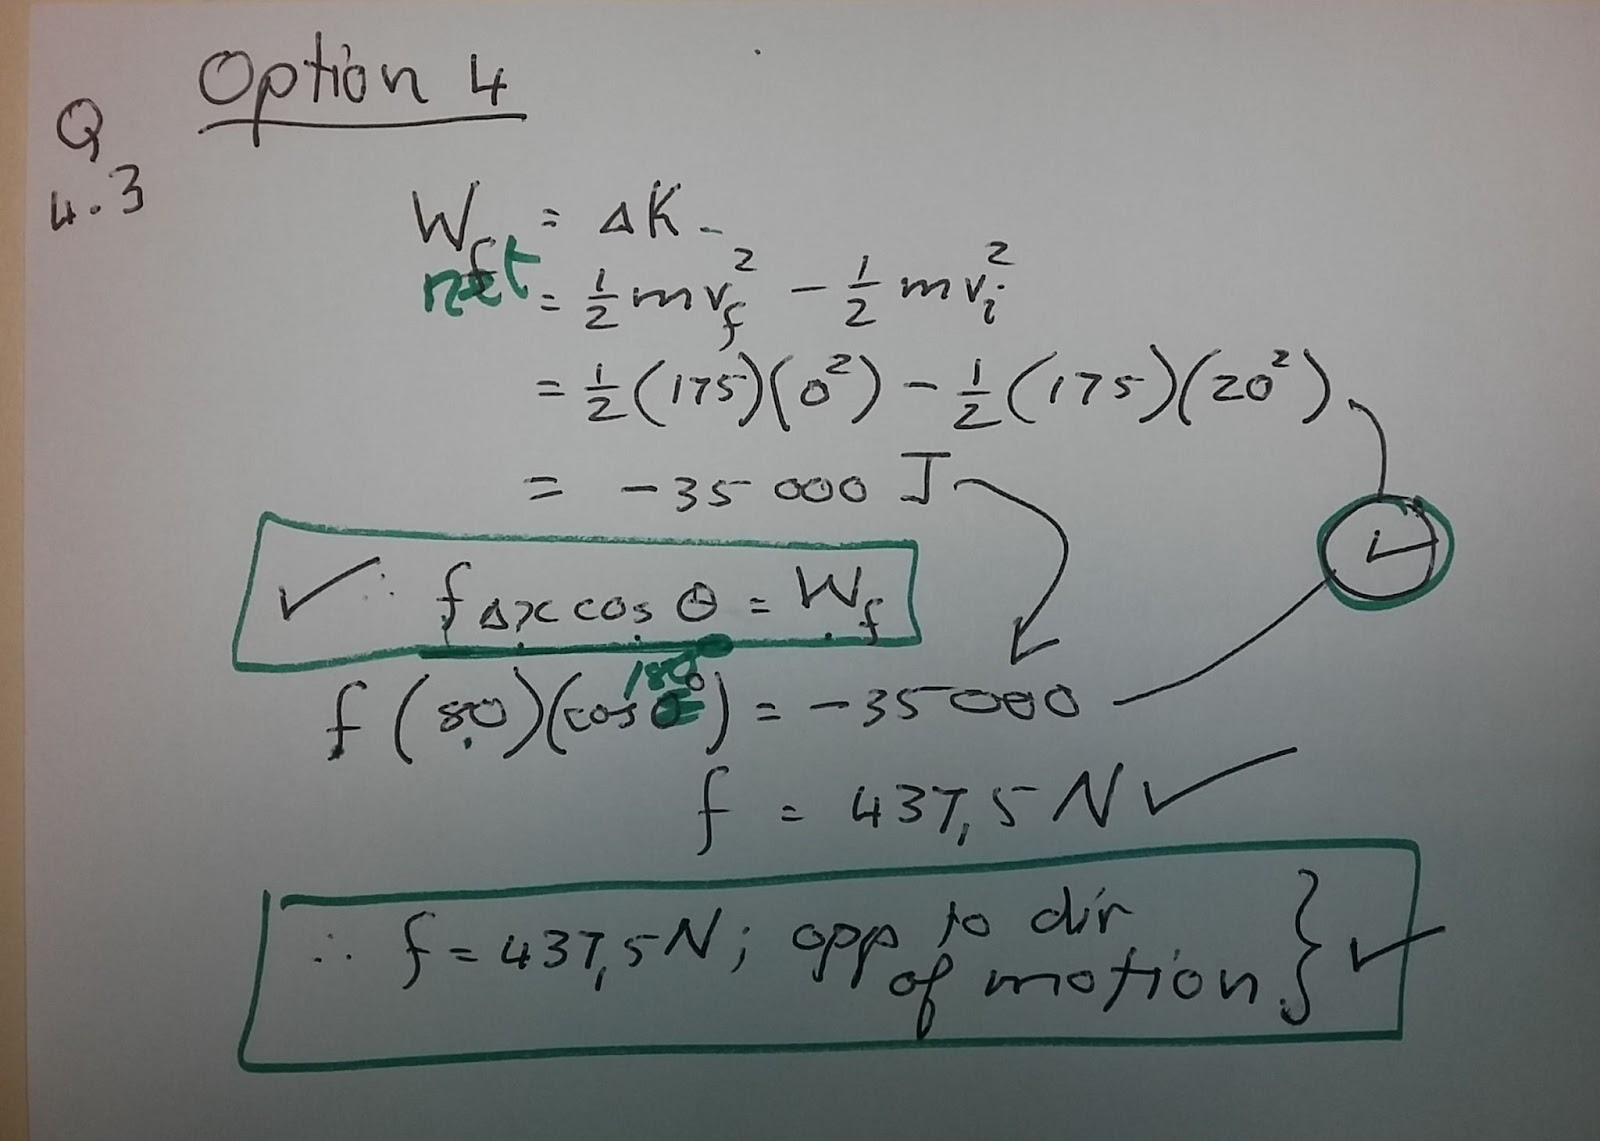 Option 4
Q
4.3
W_f net = ΔK
= ½mv_f² − ½mv_i²
= ½(175)(0²) − ½(175)(20²)
= −35 000 J
✓ ∴ fΔx cos θ = W_f
f(80)(cos 180°) = −35 000 ✓
f = 437,5 N ✓
∴ f = 437,5 N; opp to dir
of motion. } ✓